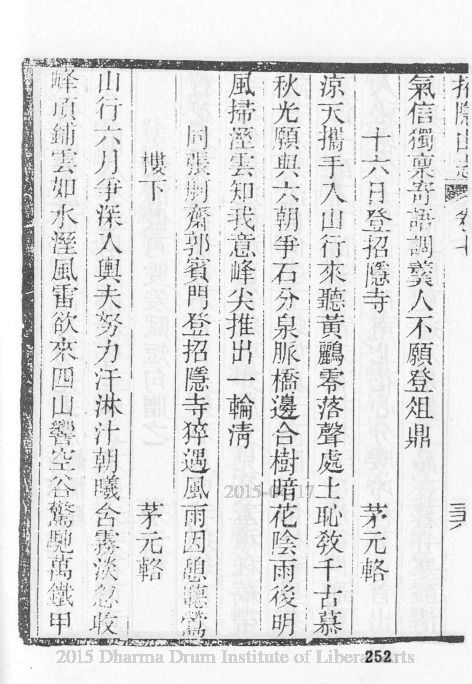 招隱山志
氣信獨稟寄語調羹人不願登俎鼎
十六日登招隱寺 茅元輅
涼天攜手入山行來聽黃鸝零落聲處士恥教千古慕
秋光願與六朝爭石分泉脈橋邊合樹暗花陰雨後明
風掃溼雲知我意峰尖推出一輪淸
同張齋郭賓門登招隱寺猝遇風雨因憩鸎
樓下 茅元輅
山行六月爭深入輿夫努力汗淋汁朝曦含霧淡忽收
峰頂鋪雲如水溼風雷欲來四山響空谷驚馳萬鐵甲
252
2015 Dharma Drum Institute of Liberal Arts